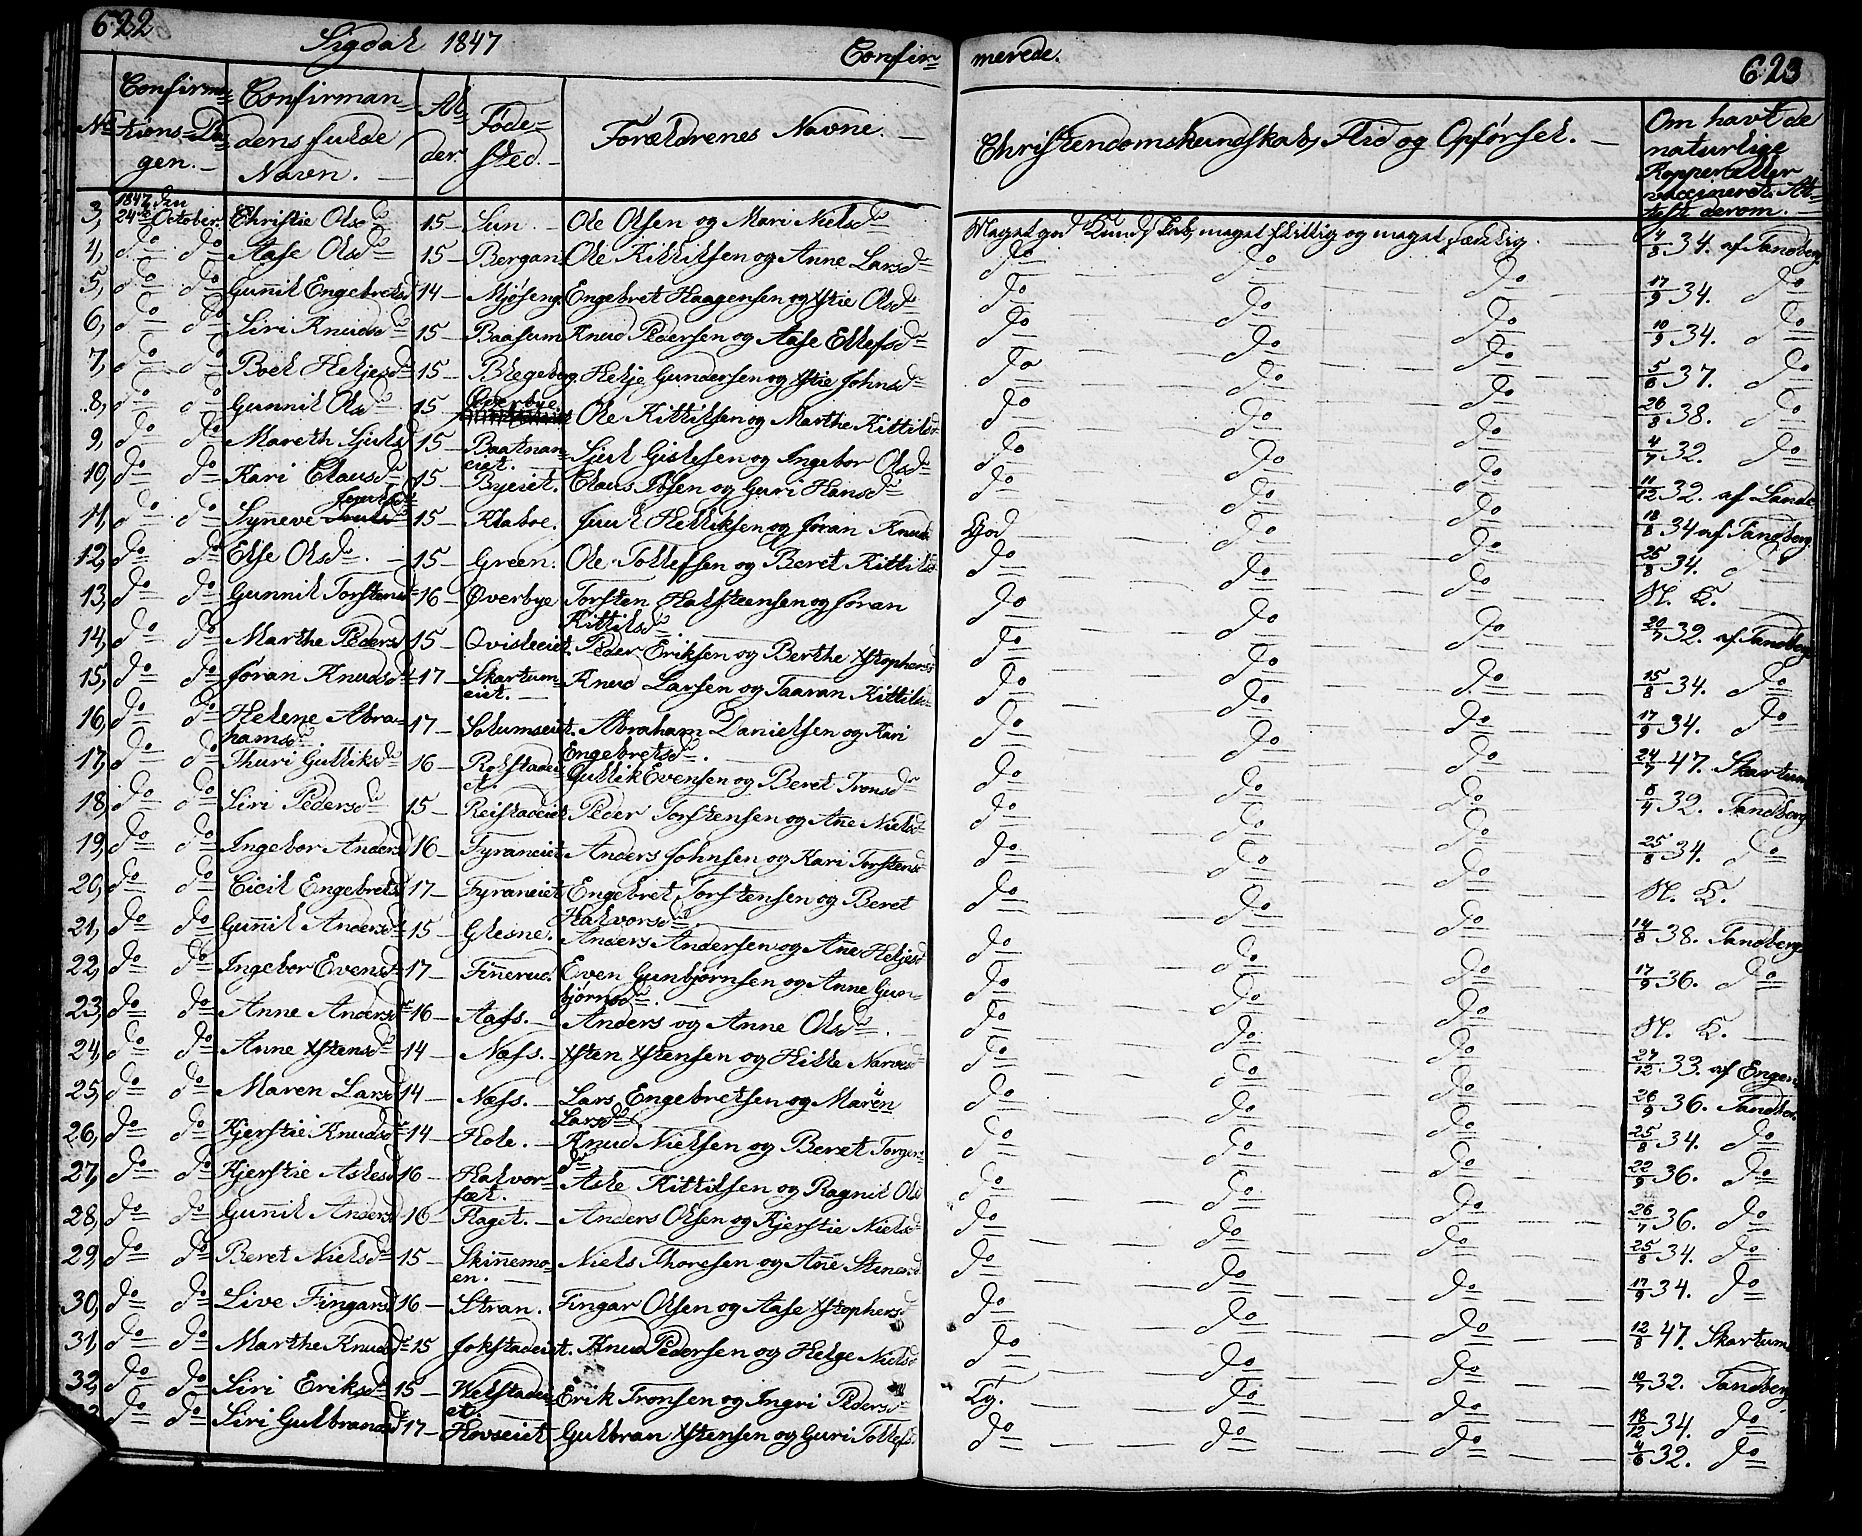 622
Sigdal 1847
Confir=
merede.
623
No
Confirma=
tions-Da=
gen.
Confirman=
dens fulde
Navn.
Al=
der.
Føde=
sted.
Forældrenes Navne.
Christendomskundskab, Flid og Opførsel.
Om havt de
naturlige
Kopper eller
vaccineret. At=
test derom.
3, 1847 den 24de October. Christie Olsdr 15 Lun. Ole Olsen og Mari Nielsdr Meget god Kundskab, meget flittig og meget sædelig. 4/8 34. af Tandberg
4, do do Aase Olsdr 15 Bergan. Ole Kittilsen og Anne Larsdr do do do 17/9 34. do
5, do do Gunnil Engebretsd 14 Mjøseng Engebret Haagensen og Xstie Olsdr do do do 10/9 34. do
6, do do Siri Knudsdr 15 Baasum Knud Pedersen og Aase Ellefsdr do do do 5/8 37. do
7, do do Boel Heljesdr 15 Blegeberg. Helje Gundersen og Xstie Johnsdr do do do 26/8 38. do
8, do do Gunnil Olsdr 15 Overbye Ole Kittilsen og Marthe Kittilsdr do do do 4/7 32. do
9, do do Mareth Sjulsd 15 Baatnan=
eiet. Sjul Gislesen og Ingebor Olsdr do do do 11/12 32. af Lande
10, do do Kari Clausdr 15 Byeiet. Claus Ibsen og Guri Hansdr do do do 18/8 34 af Tandberg.
11, do do Syneve Juulsdr 15 Klaboe. Juul Helliksen og Jøran Knuds God do do 25/8 34. do
12, do do Else Olsdr 15 Green. Ole Tollefsen og Beret Kittilsd do do do N. K.
13, do do Gunnil Torstensd 16 Øverbye Torsten Halsteensen og Jøran
Kittilsdr do do do 20/7 32. af Tandberg
14, do do Marthe Pedersd 15 Qvisleeiet. Peder Eriksen og Berthe Xstophersd do do do 15/8 34. do
15, do do Jøran Knudsdr 17 Skartum=
eiet. Knud Larsen og Taaran Kittilsdr do do do 17/9 34. do
16, do do Helene Abra=
hamsdr 17 Solumseiet. Abraham Danielsen og Kari
Engebretsdr. do do do 24/7 47. Skartum
17, do do Thuri Gulliksdr 16 Rolstadei=
et. Gullik Evensen og Beret Tronsdr do do do 8/4 32. Tandberg
18, do do Siri Pedersdr 15 Reistadeiet Peder Torstensen og Añe Nielsdr do do do 25/8 34. do
19, do do Ingebor Andersd 16 Fyraneiet Anders Johnsen og Kari Torstensdr do do do N. K.
20, do do Cicil Engebretsd 17 Fyraneiet Engebret Torstensen og Beret
Halvorsdr do do do 14/8 38. Tandberg
21, do do Guñil Andersdr 15 Glesne. Anders Andersen og Añe Heljesd do do do 17/9 36. do
22, do do Ingebor Evensdr 17 Fiñerud. Even Gunbjørnsen og Anne Gun=
bjørnsdr. do do do N. K.
23, do do Anne Andersdr 16 Aafs. Anders og Anne Olsdr. do do do 27/12 33. af Engen
24, do do Anne Xstensdr 14 Næss. Xsten Xstensen og Hille Narvesd do do do 26/9 36. Tandber
25, do do Maren Larsd 14 Næss. Lars Engebretsen og Maren
Larsdr do do do 25/8 34. do
26, do do Kjerstie Knudsdr 14 Hole. Knud Nielsen og Beret Torgers=
dr do do do 22/9 36. do
27, do do Kjerstie Aslesd 16 Halvor=
sæt. Asle Kittilsen og Ragnil Olsd do do do 26/7 36. do
28, do do Guñil Andersd 16 Flaget. Anders Olsen og Kjerstie Nielsd do do do 25/8 34. do
29, do do Beret Nielsdr 15 Skiñemo=
en. Niels Thoresen og Añe Stensd do do do 17/9 34. do
30, do do Live Fingarsd 16 Stran. Fingar Olsen og Aase Xstophersd do do do 12/8 47. Skartum
31, do do Marthe Knudsdr 15 Jokstadeiet. Knud Pedersen og Helge Nielsd do do do 10/7 32. Tandberg
32, do do Siri Eriksdr 15 Velstadei
et. Erik Tronsen og Ingri Pedersdr Tg. do do 18/12 34. do
do do Siri Gulbrandsdr 17 Hovseiet Gulbran Xstensen og Guri Tollefs do do do 4/6 32. do